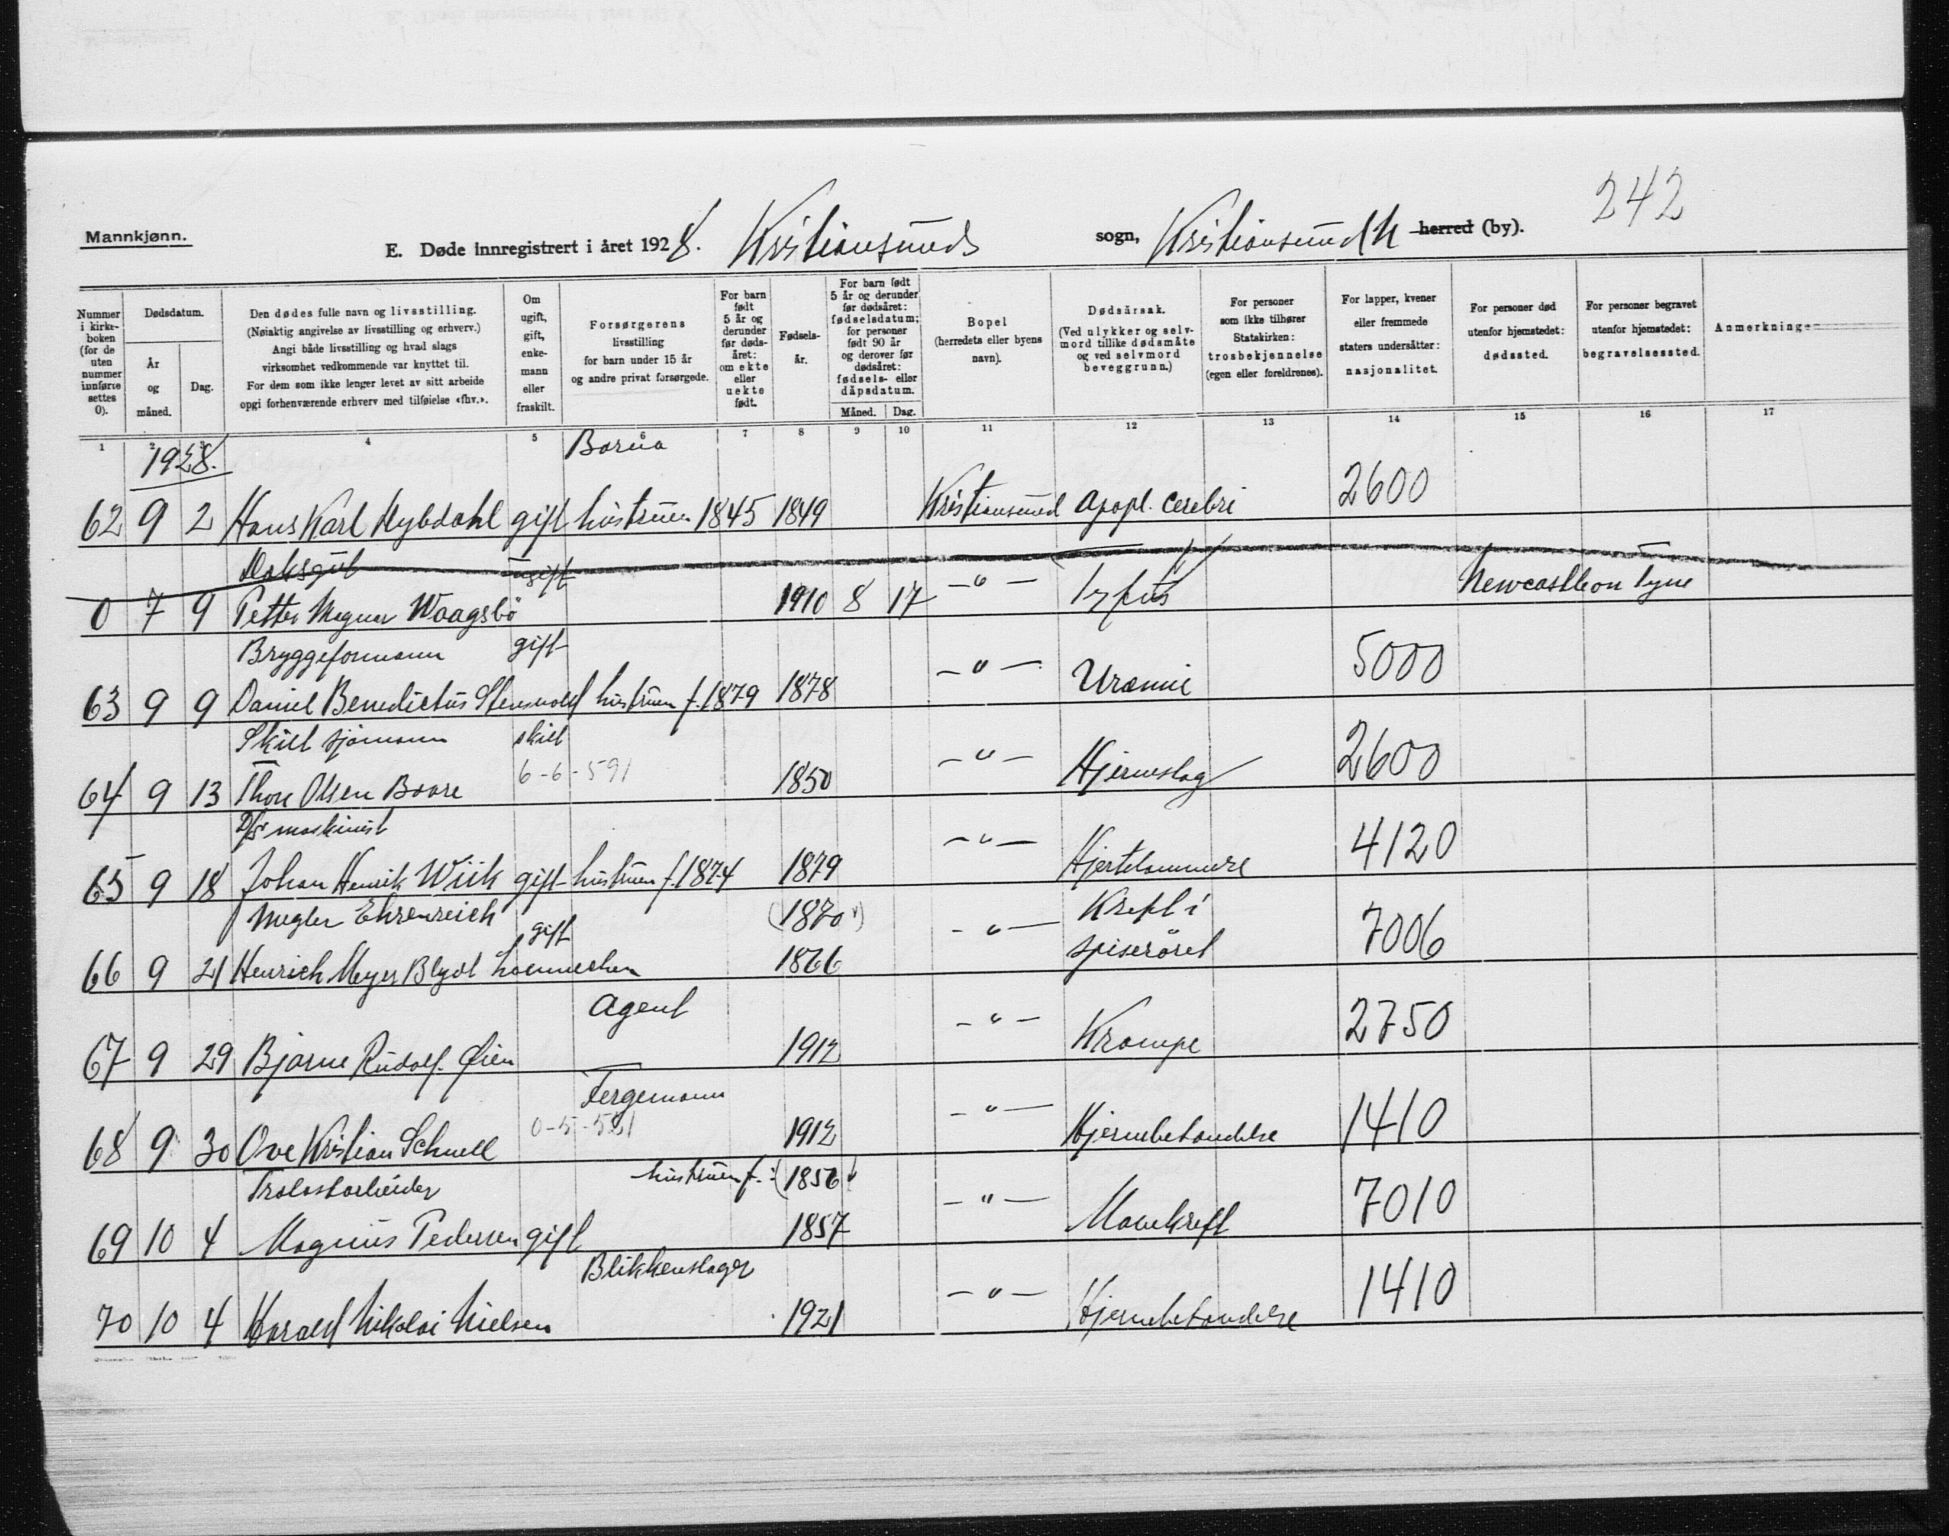 242
Mannkjønn.
E. Døde innregistrert i året 1928. Kristiansunds sogn, Kristiansund N herred (by).
Nummer i kirkeboken (for de uten nummer innførte settes 0).
Dødsdatum.
År og måned.
Dag.
Den dødes fulle navn og livsstilling.
(Nøiaktig angivelse av livsstilling og erhverv.)
Angi både livsstilling og hvad slags
virksomhet vedkommende var knyttet til.
For dem som ikke lenger levet av sitt arbeide
opgi forhenværende erhverv med tilføielse «fhv.».
Om ugift, gift, enkemann eller fraskilt.
Forsørgerens livsstilling for barn under 15 år og andre privat forsørgede.
For barn født 5 år og derunder før dødsåret: om ekte eller uekte født.
Fødselsår.
For barn født 5 år og derunder før dødsåret: fødselsdatum; for personer født 90 år og derover før dødsåret: fødsels- eller dåpsdatum.
Måned. Dag.
Bopel (herredets eller byens navn).
Dødsårsak. (Ved ulykker og selvmord tillike dødsmåte og ved selvmord beveggrunn.)
For personer som ikke tilhører Statskirken: trosbekjennelse (egen eller foreldrenes).
For lapper, kvener eller fremmede staters undersåtter: nasjonalitet.
For personer død utenfor hjemstedet: dødssted.
For personer begravet utenfor hjemstedet: begravelsessted.
Anmerkninge
1 2 3 4 5 6 7 8 9 10 11 12 13 14 15 16 17
1928.
62 9 2 Hans Karl Nybdahl gift hustruen 1845 1849 Kristiansund Apopl. cerebri 2600
ugift
0 7 9 Petter Magnar Waagsbö 1910 8 17 -"- Tyfus Newcastle on Tyne
Bryggeformann gift
63 9 9 Daniel Benedictus Stensvold hustruen f. 1879 1878 -"- Uræmie 5000
sjømann skilt
6-6-591
64 9 13 Thore Olsen Boare 1850 -"- Hjerneslag 2600
D/s maskinist
65 9 18 Johan Henrik Wiik gift hustruen f. 1874 1879 -"- Hjertelammelse 4120
Megler Ehrenreich gift (1870)
66 9 21 Henrich Meyer Blydt Loennechen 1866 -"- Kreft i spiserøret 7006
Agent
67 9 29 Bjarne Rudolf Øien 1912 -"- Krampe 2750
Fergemann
68 9 30 Ove Kristian Schnell 1912 -"- Hjernebetendelse 1410
hustruen f. (1856)
69 10 4 Magnus Pedersen gift 1857 -"- Mavekreft 7010
Blikkenslager
70 10 4 Harald Nikolai Nielsen 1921 -"- Hjernebetendelse 1410